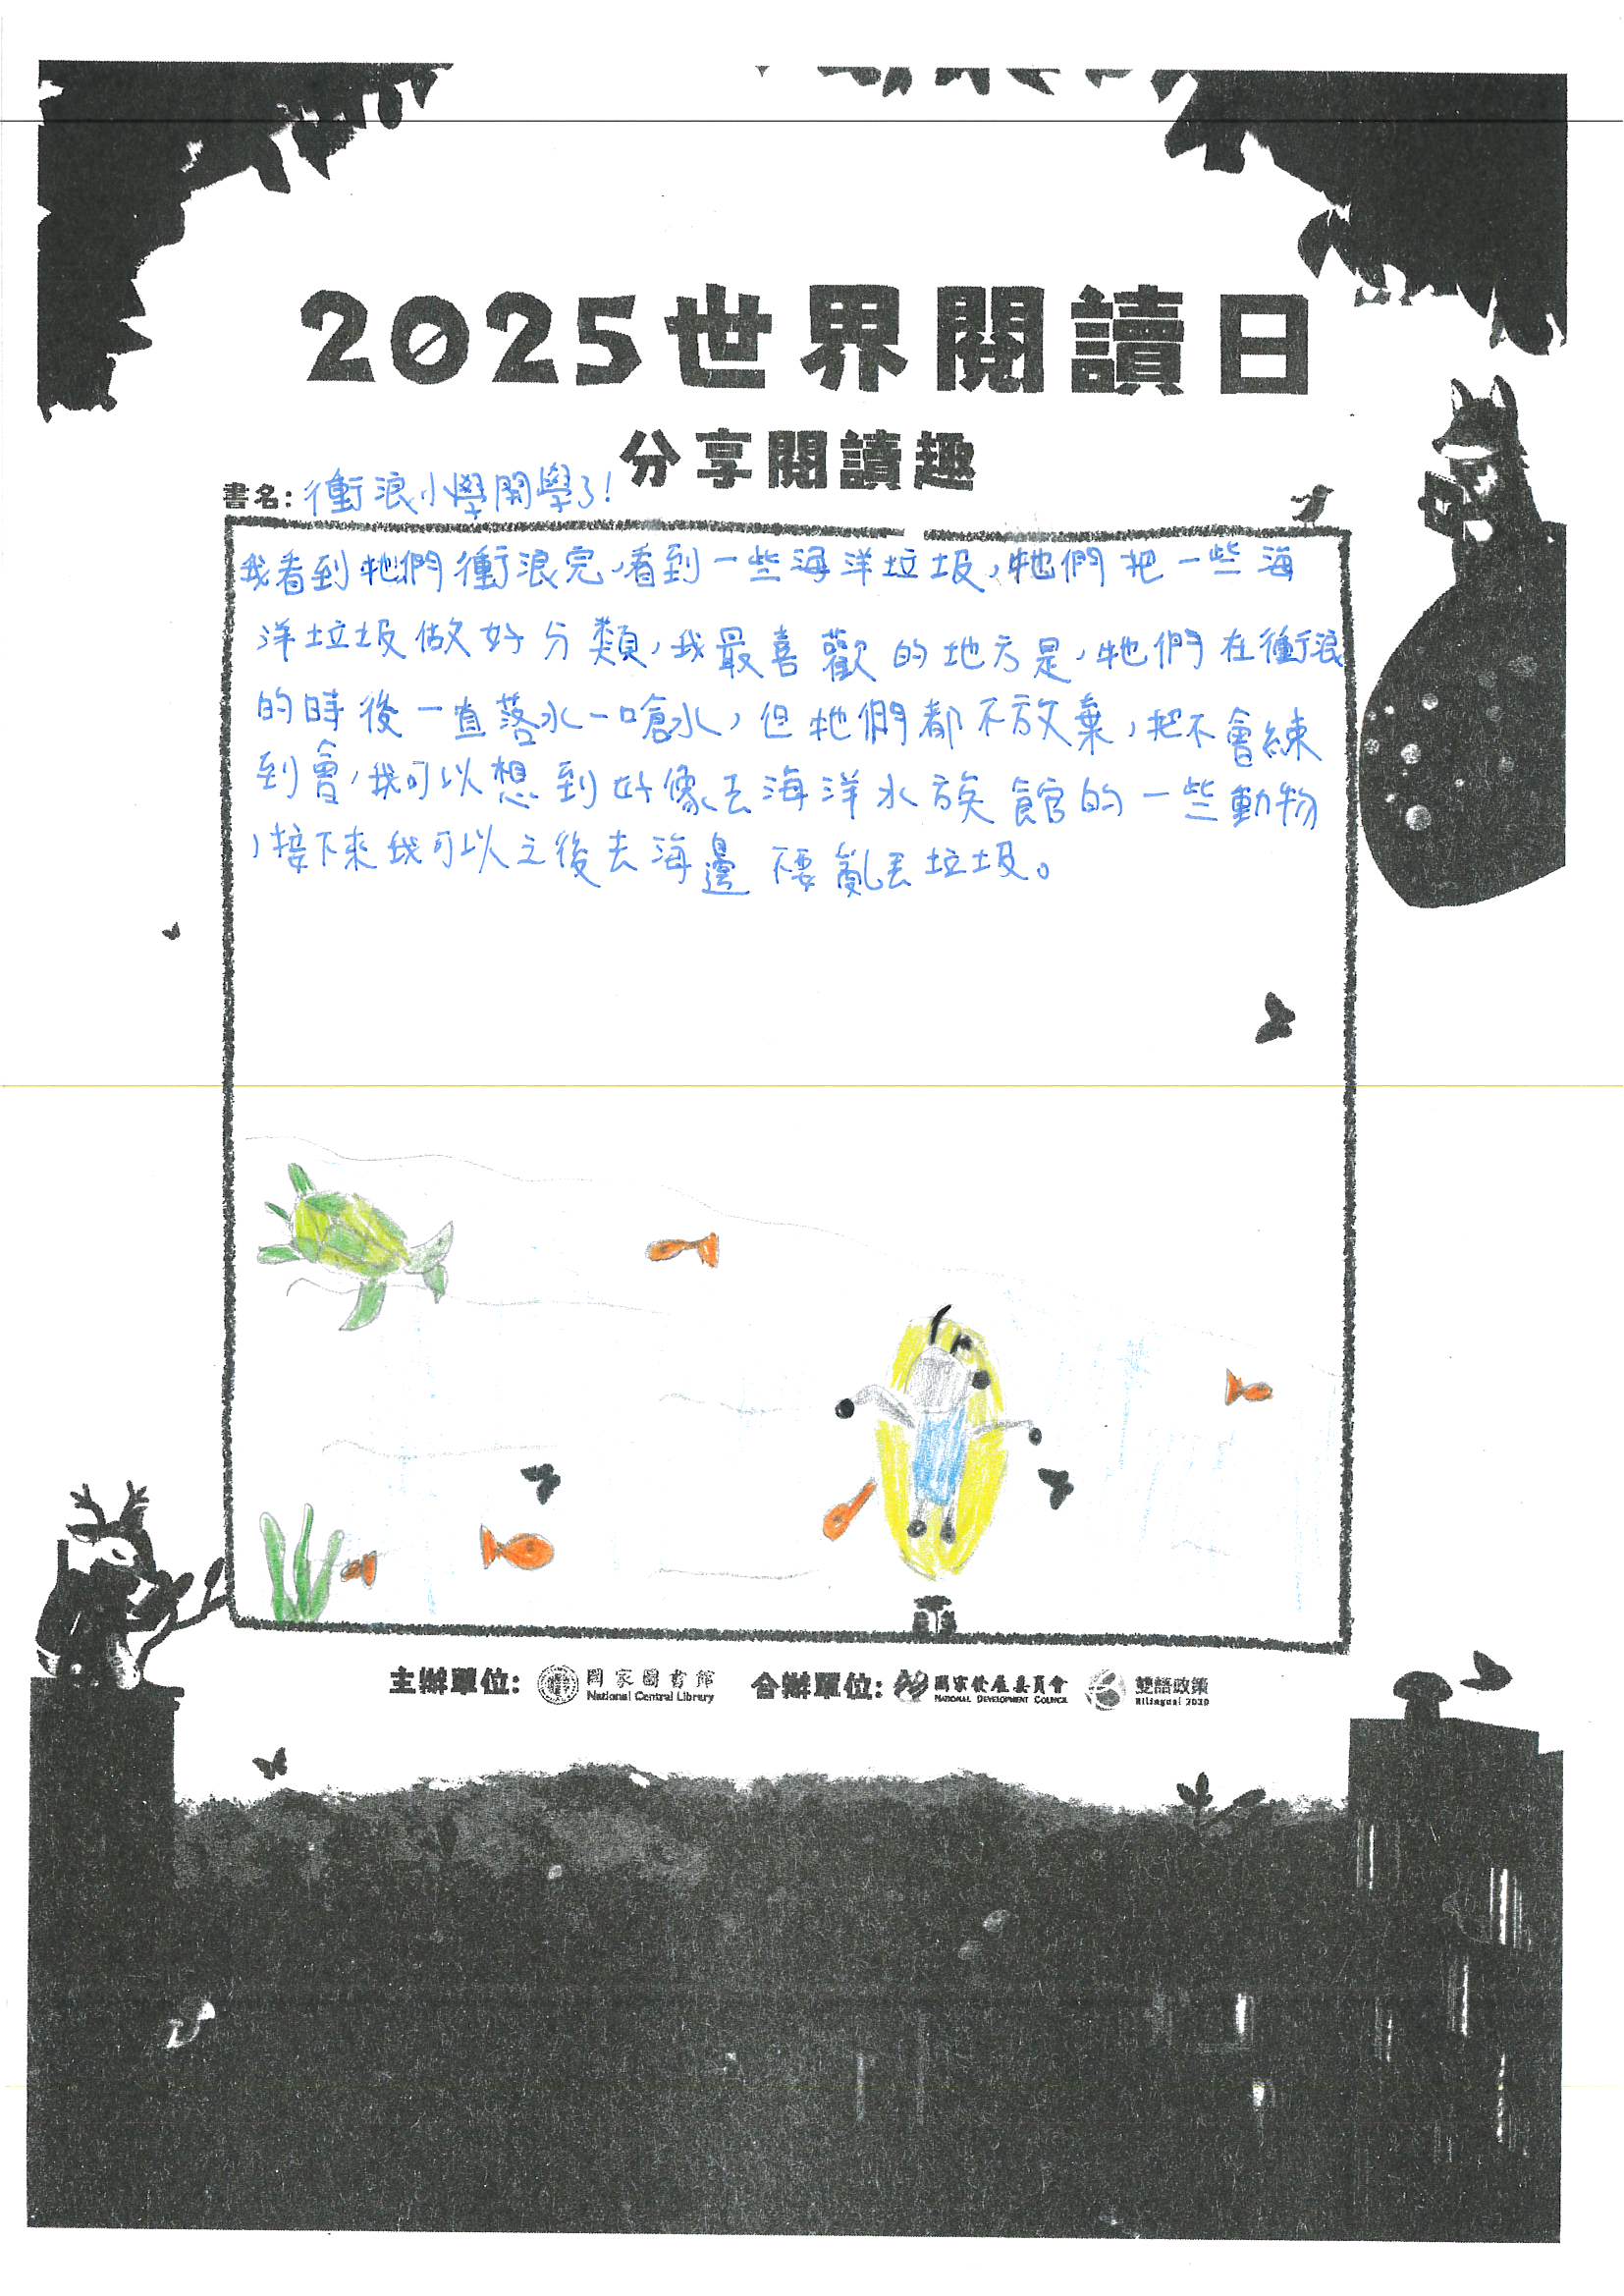 2025世界閱讀日
分享閱讀趣
書名:衝浪小學開學了!
我看到牠們衝浪完,看到一些海洋垃圾,牠們把一些海
洋垃圾做好分類,我最喜歡的地方是,牠們在衝浪
的時後一直落水一嗆水,但牠們都不放棄,把不會練
到會,我可以想到好像去海洋水族館的一些動物
,接下來我可以之後去海邊不要亂丟垃圾。
主辦單位: 國家圖書館 合辦單位: 國家發展委員會 雙語政策
National Central Library NATIONAL DEVELOPMENT COUNCIL Bilingual 2030